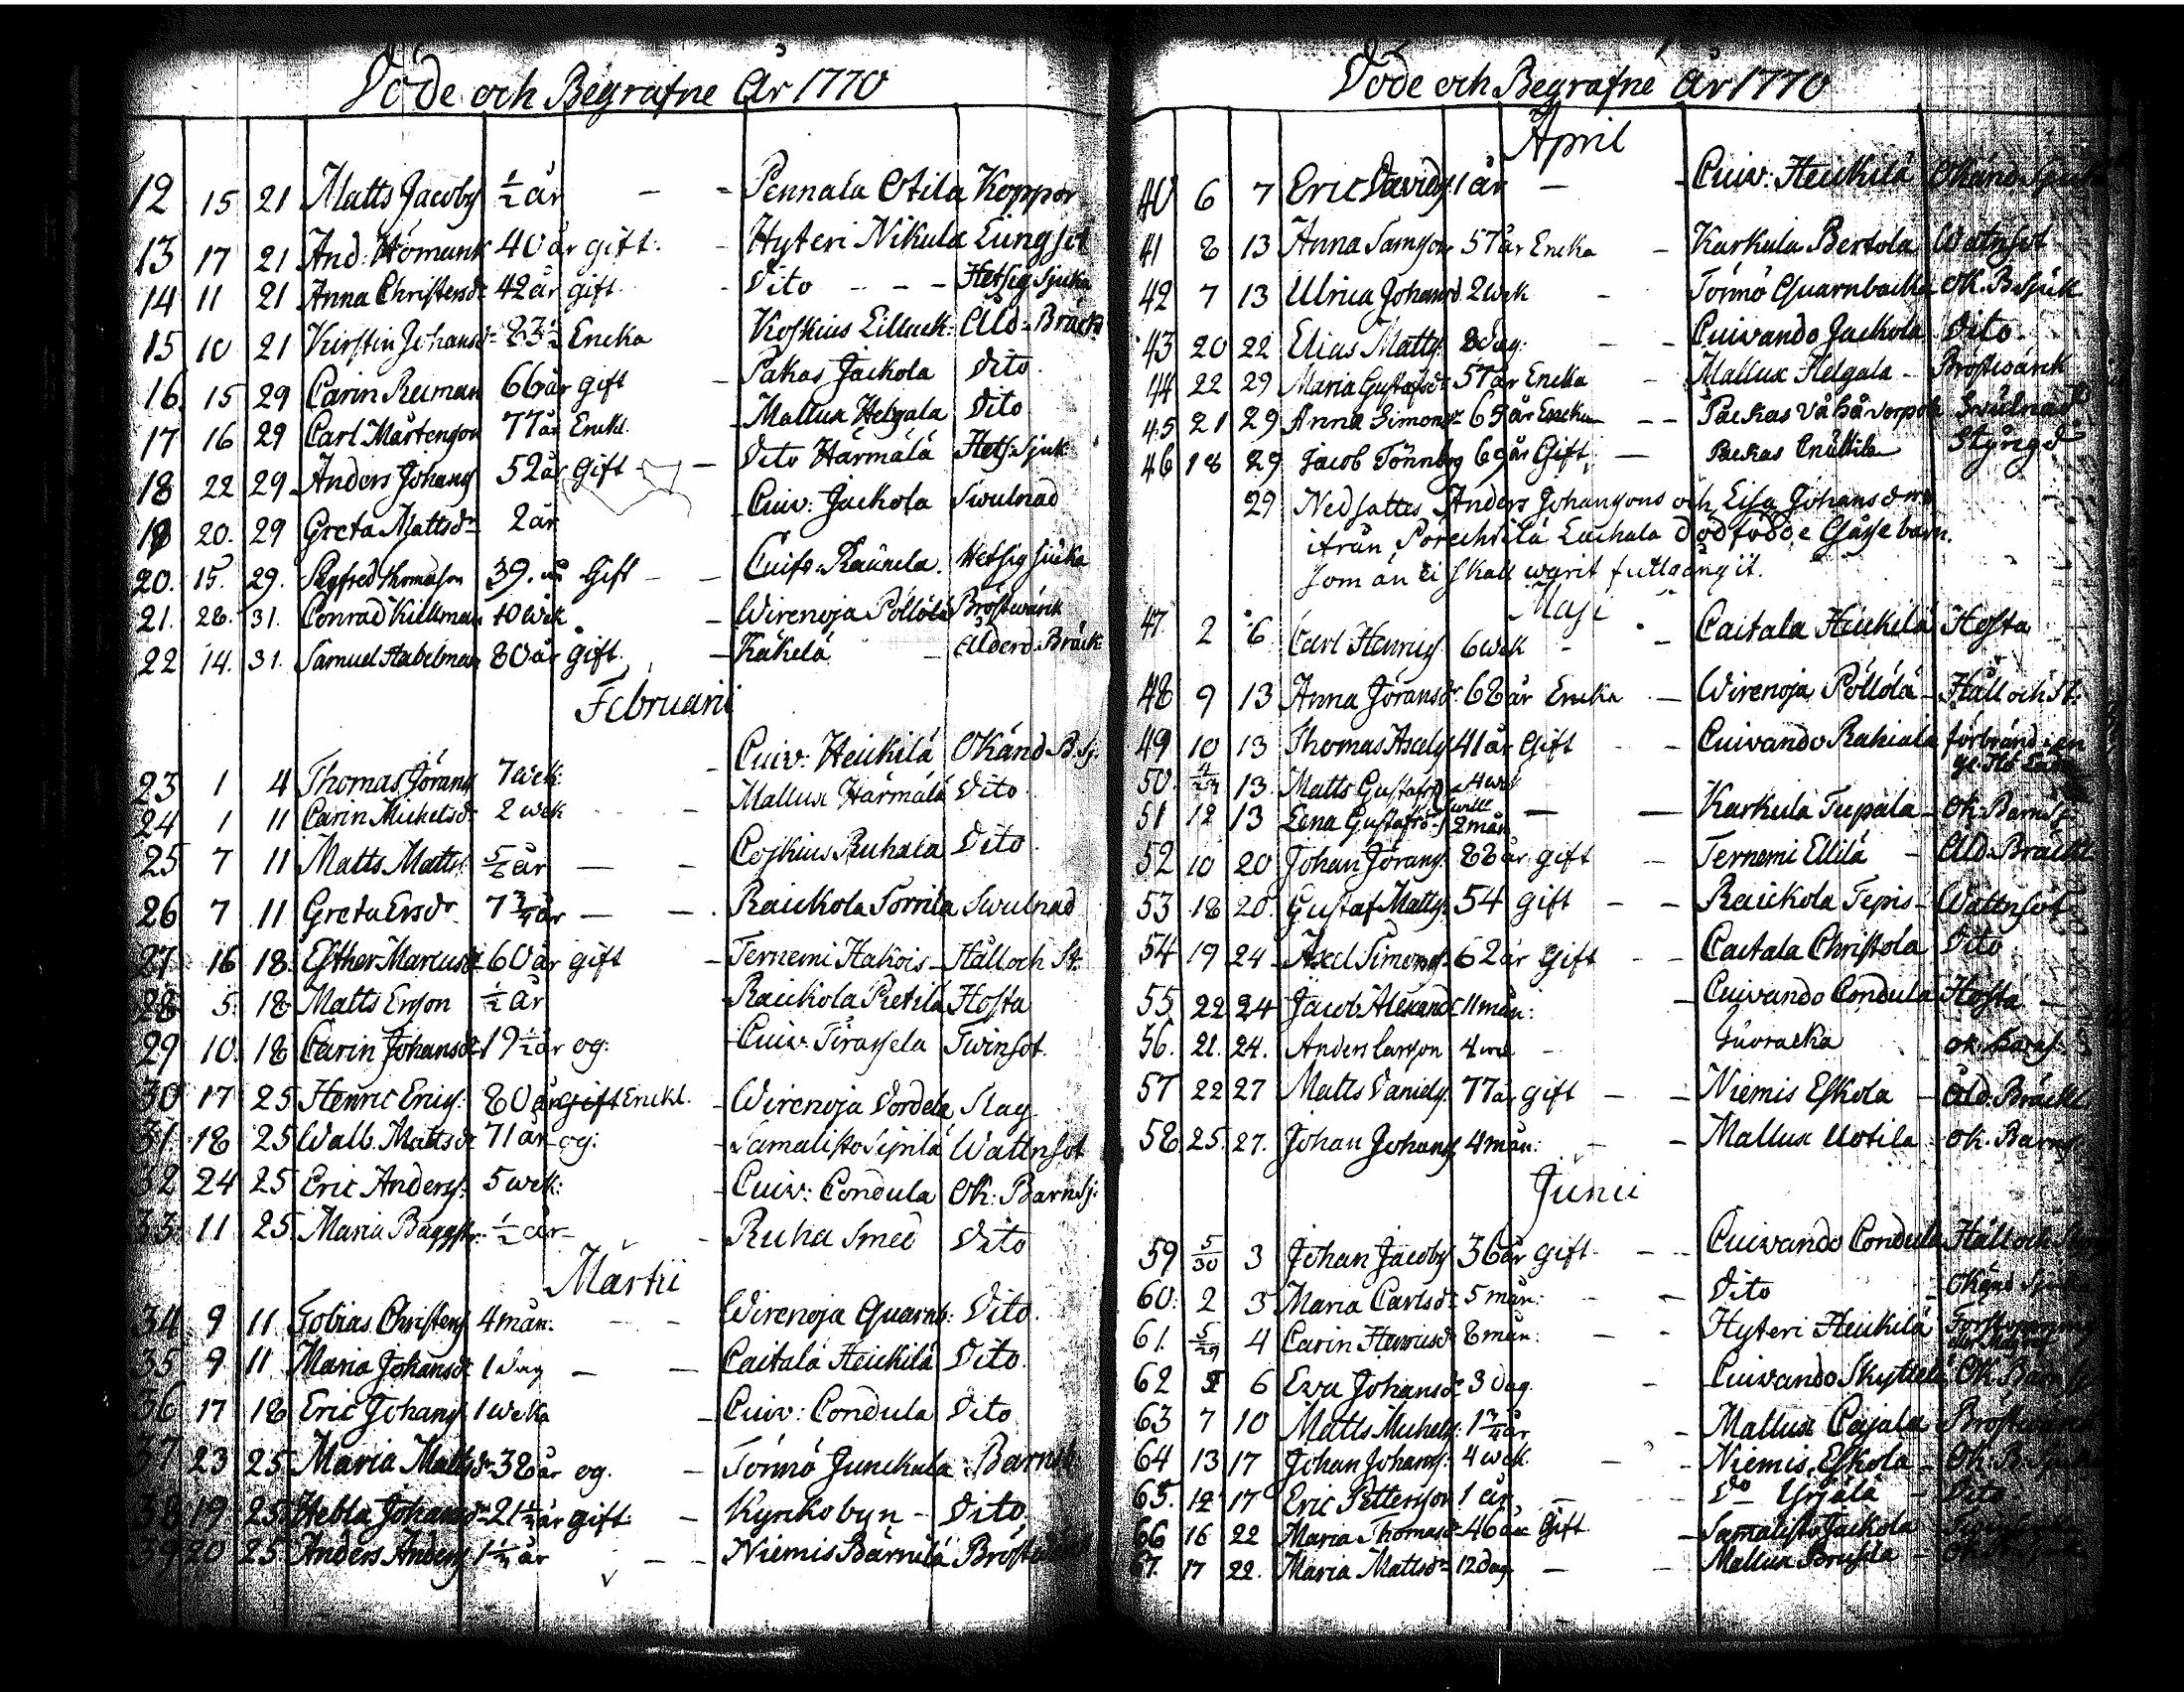 Döde och Begrafne År 1770
12 15 21 Matts Jacobs 1/2 år - - Pennala Otila Koppor
13 17 21 And: Homank 40 år gift: - Hyteri Nikula Lungsot
14 11 21 Anna Christersdr 42 år gift - Dito - - - Hetsig Sjuka
15 10 21 Kirstin Johansdr 83 1/2 Encka Koskius Lilluck: Åld: Bräck
16. 15 29 Carin Reiman 66 år gift - Pakas Jackola Dito.
17 16 29 Carl Mårtenson 77 år Enckl. - Mallux Helgala Dito
18 22 29 Anders Johans 52 år gift - Dito Härmälä Hets: Sjuk:
19 20. 29 Greta Mattsdr 2 år - Cuiv: Jackola Swulnad
20. 15. 29. Sigfred Thomason 39. år Gift - - Cuifv: Raunela. Hetsig sjuka
21. 28. 31. Conrad Killman 10 wek - Wirenoja Pöllölä Bröstwärck
22 14. 31. Samuel Habelman 80 år gift. - Käkelä - Ålderd. Bräck
Februarii
23 1 4 Thomas Jörans 7 wek: - Cuiv: Heickilä Okänd B. sj.
24 1 11 Carin Michelsdr 2 wek - Mallux Härmälä Dito
25 7 11 Matts Matts: 5/6 år - - Coskius Ruhala Dito
26 7 11 Greta Ersdr 7 3/4 år - - . Raickola Sorrila Swulnad
27 16 18 Esther Marcusdr 60 år gift - Ternemi Hakois - Håll och St:
28 5. 18 Matts Erson 1/2 år Raickola Pietilä Hosta
29 10. 18 Carin Johansdr 19 1/2 år og: - Cuiv: Tirassela Twinsot.
30 17 25 Henric Erics: 80 år gift Enckl. - Wirenoja Vordela Slag
31. 18 25 Walb. Mattsdr 71 år og: - Samalisto Sipilä Wattnsot
32 24 25 Eric Anders: 5 wek: - Cuiv: Condula Ok: Barnsj:
33. 11 25 Maria Baggstr: 1/2 år - - Ruha Smed Dito
Martii
34 9 11 Tobias Christers 4 mån: - - Wirenoja Quarnb: Dito.
35 9 11 Maria Johansdr 1 dag - - Caitala Heickilä Dito.
36 17 18 Eric Johans 1 weka - Cuiv: Condula Dito
37 23 25 Maria Mattsdr 38 år og. - Tönnö Junckala Barns.
38 19 25 Hebla Johansdr 21 1/2 år gift: - - Kyrkobyn - Dito
39 20 25 Anders Anders 1 1/2 år - - Niemis Bärnilä
Döde och Begrafne År 1770
April
40 6 7 Eric Davids 1 år - - Cuiv: Heickilä Okänd Sjuka
41 8 13 Anna Samsons 57 år Encka - Karkula Bertola Wattnsot
42 7 13 Ulrica Johansd. 2 wek - Tönnö Quarnbacka Ok. B. sjuk
43 20 22 Elias Matts: 8 dag: - - Cuivando Jackola Dito
44 22 29 Maria Gustafsdr 57 år Encka - Mallux Helgala - Bröstwärck
45 21 29 Anna Simonsdr 65 år Encka - - Packas Swulnad
46 18 29 Jacob Tönnberg 69 år Gift - Packas Styngd
29 Nedsattes Anders Johansons och Lisa Johansdrs
ifrån Porechtilä Luchala dödfödde Gåsse barn.
som än ei skall warit fullgångit.
Maji
47. 2 6. Carl Henrics 6 wek - - Caitala Heickilä Hosta
48 9 13 Anna Jöransdr 68 år Encka - Wirenoja Pöllölä - Håll och St:
49 10 13 Thomas Axels 41 år Gift - - Cuivando Rahiala förbränd i en
50. 4/29 13. Matts Gustafs 4 wek
51 12 13 Lena Gustafsdr 2 mån - - Karkula Tupala - Ok: Barnsj:
52 10 20 Johan Jörans: 88 år gift - Ternemi Ellilä - Åld: Bräckl.
53 18 20. Gustaf Matts: 54 gift - - Raickola Tepis - Wattnsot
54 19 24 Axel Simons 62 år Gift - - Caitala Christola Dito
55 22 24 Jacob Alexand: 11 mån: - Cuivando Condula Hosta -
56. 21. 24. Anders Larsson 4 wek - Suoracka ok: Barnsj:
57 22 27 Matts Daniels: 77 år gift - - Niemis Eskola - Åld: Bräckl
58 25. 27. Johan Johans 4 mån: - - Mallux Uotila - ok. Barns:
Junii
59 5/30 3 Johan Jacobs 36 år gift - - - Cuivando Condula Håll och
60: 2 3 Maria Carlsdr 5 mån: - - Dito - Okänd Sjuka
61. 5/29 4 Carin Henricsdr 8 mån: - - Hyteri Heickilä
62 1 6 Eva Johansdr 3 dag. - Cuivando Skyttelä Ok: Barnsj
63 7 10 Matts Michels: 1 3/4 år - Mallux Cajala Bröstwärck
64 13 17 Johan Johans: 4 wek. - - Niemis Eskola - Ok: B: Sjuka
65. 12 17 Eric Petterson 1 år - - Do Yrjälä - Dito
66 16 22 Maria Thomasdr 46 år Gift - Samalisto Jackola -
67. 17 22. Maria Mattsdr 12 dag - - Mallux Brusila -